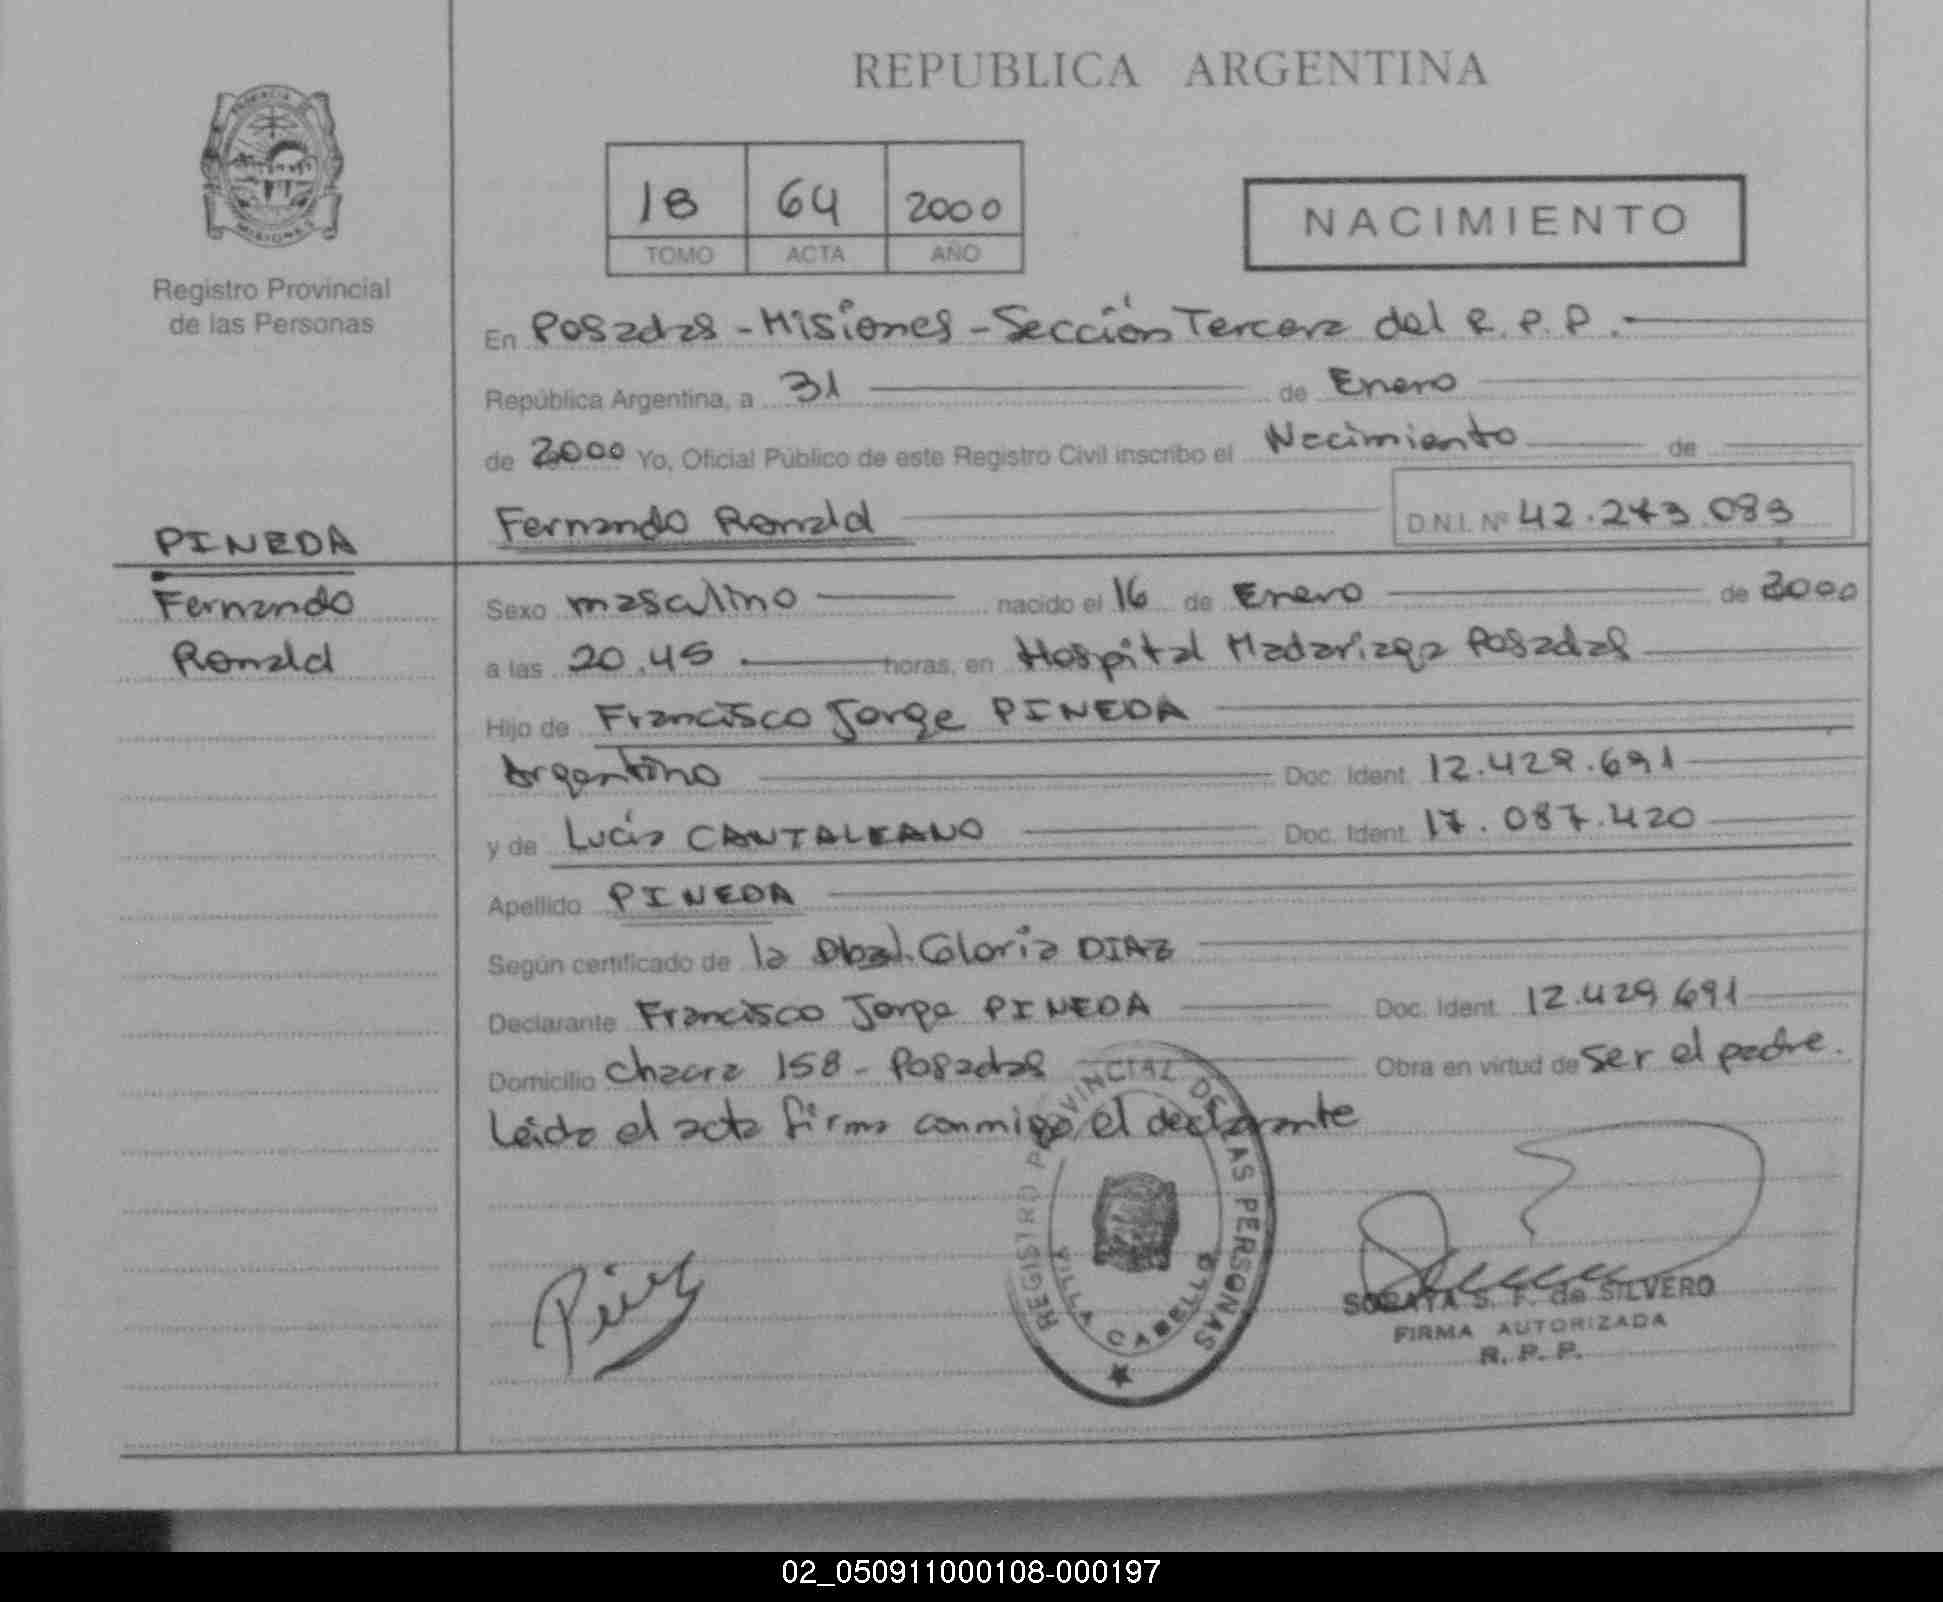 REPUBLICA ARGENTINA
PROVINCIA DE
MISIONES
Registro Provincial
de las Personas
18 64 2000
TOMO ACTA AÑO
NACIMIENTO
En Posadas - Misiones - Sección Tercera del R. P. P.
República Argentina, a 31 de Enero
de 2000 Yo, Oficial Público de este Registro Civil inscribo el Nacimiento de
Fernando Ronald D.N.I. Nº 42.243.083
PINEDA
Fernando
Ronald
Sexo masculino nacido el 16 de Enero de 2000
a las 20.45 horas, en Hospital Madariaga Posadas
Hijo de Francisco Jorge PINEDA
Argentino Doc. Ident. 12.429.691
y de Lucía CANTALEANO Doc. Ident. 17.087.420
Apellido PINEDA
Según certificado de la Obst. Gloria DIAZ
Declarante Francisco Jorge PINEDA Doc. Ident. 12.429.691
Domicilio Chacra 158 - Posadas Obra en virtud de ser el padre.
Leída el acta firma conmigo el declarante
REGISTRO PROVINCIAL DE LAS PERSONAS
VILLA CABELLO
SORAYA S. F. de SILVERO
FIRMA AUTORIZADA
R. P. P.
02_050911000108-000197